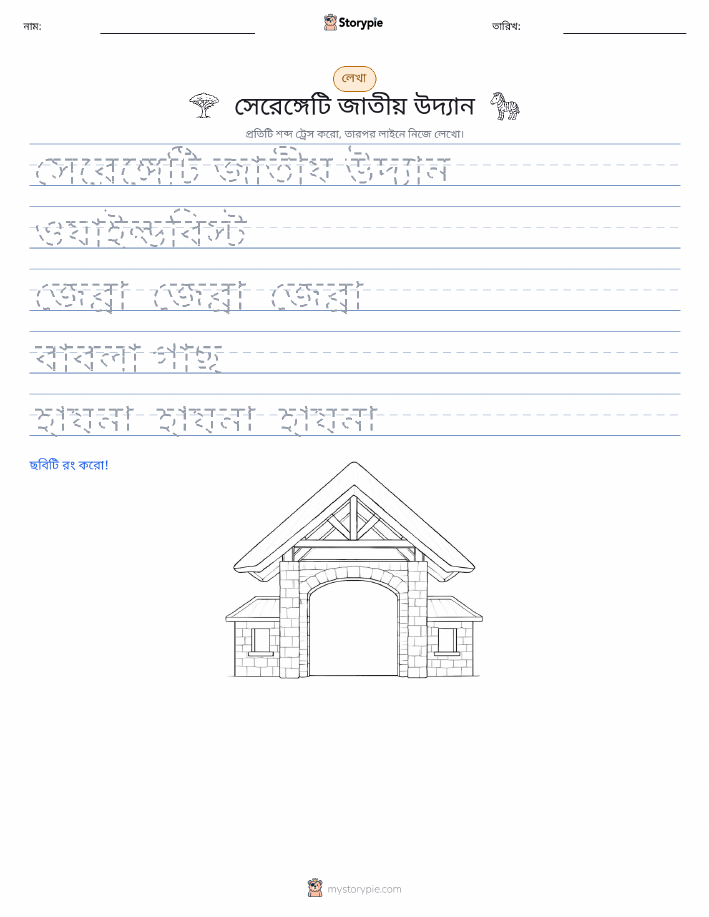 নাম:
Storypie
তারিখ:
লেখা
সেরেঙ্গেটি জাতীয় উদ্যান
প্রতিটি শব্দ ট্রেস করো, তারপর লাইনে নিজে লেখো।
সেরেঙ্গেটি জাতীয় উদ্যান
ওয়াইল্ডবিস্ট
জেব্রা জেব্রা জেব্রা
বাবলা গাছ
হায়না হায়না হায়না
ছবিটি রং করো!
mystorypie.com